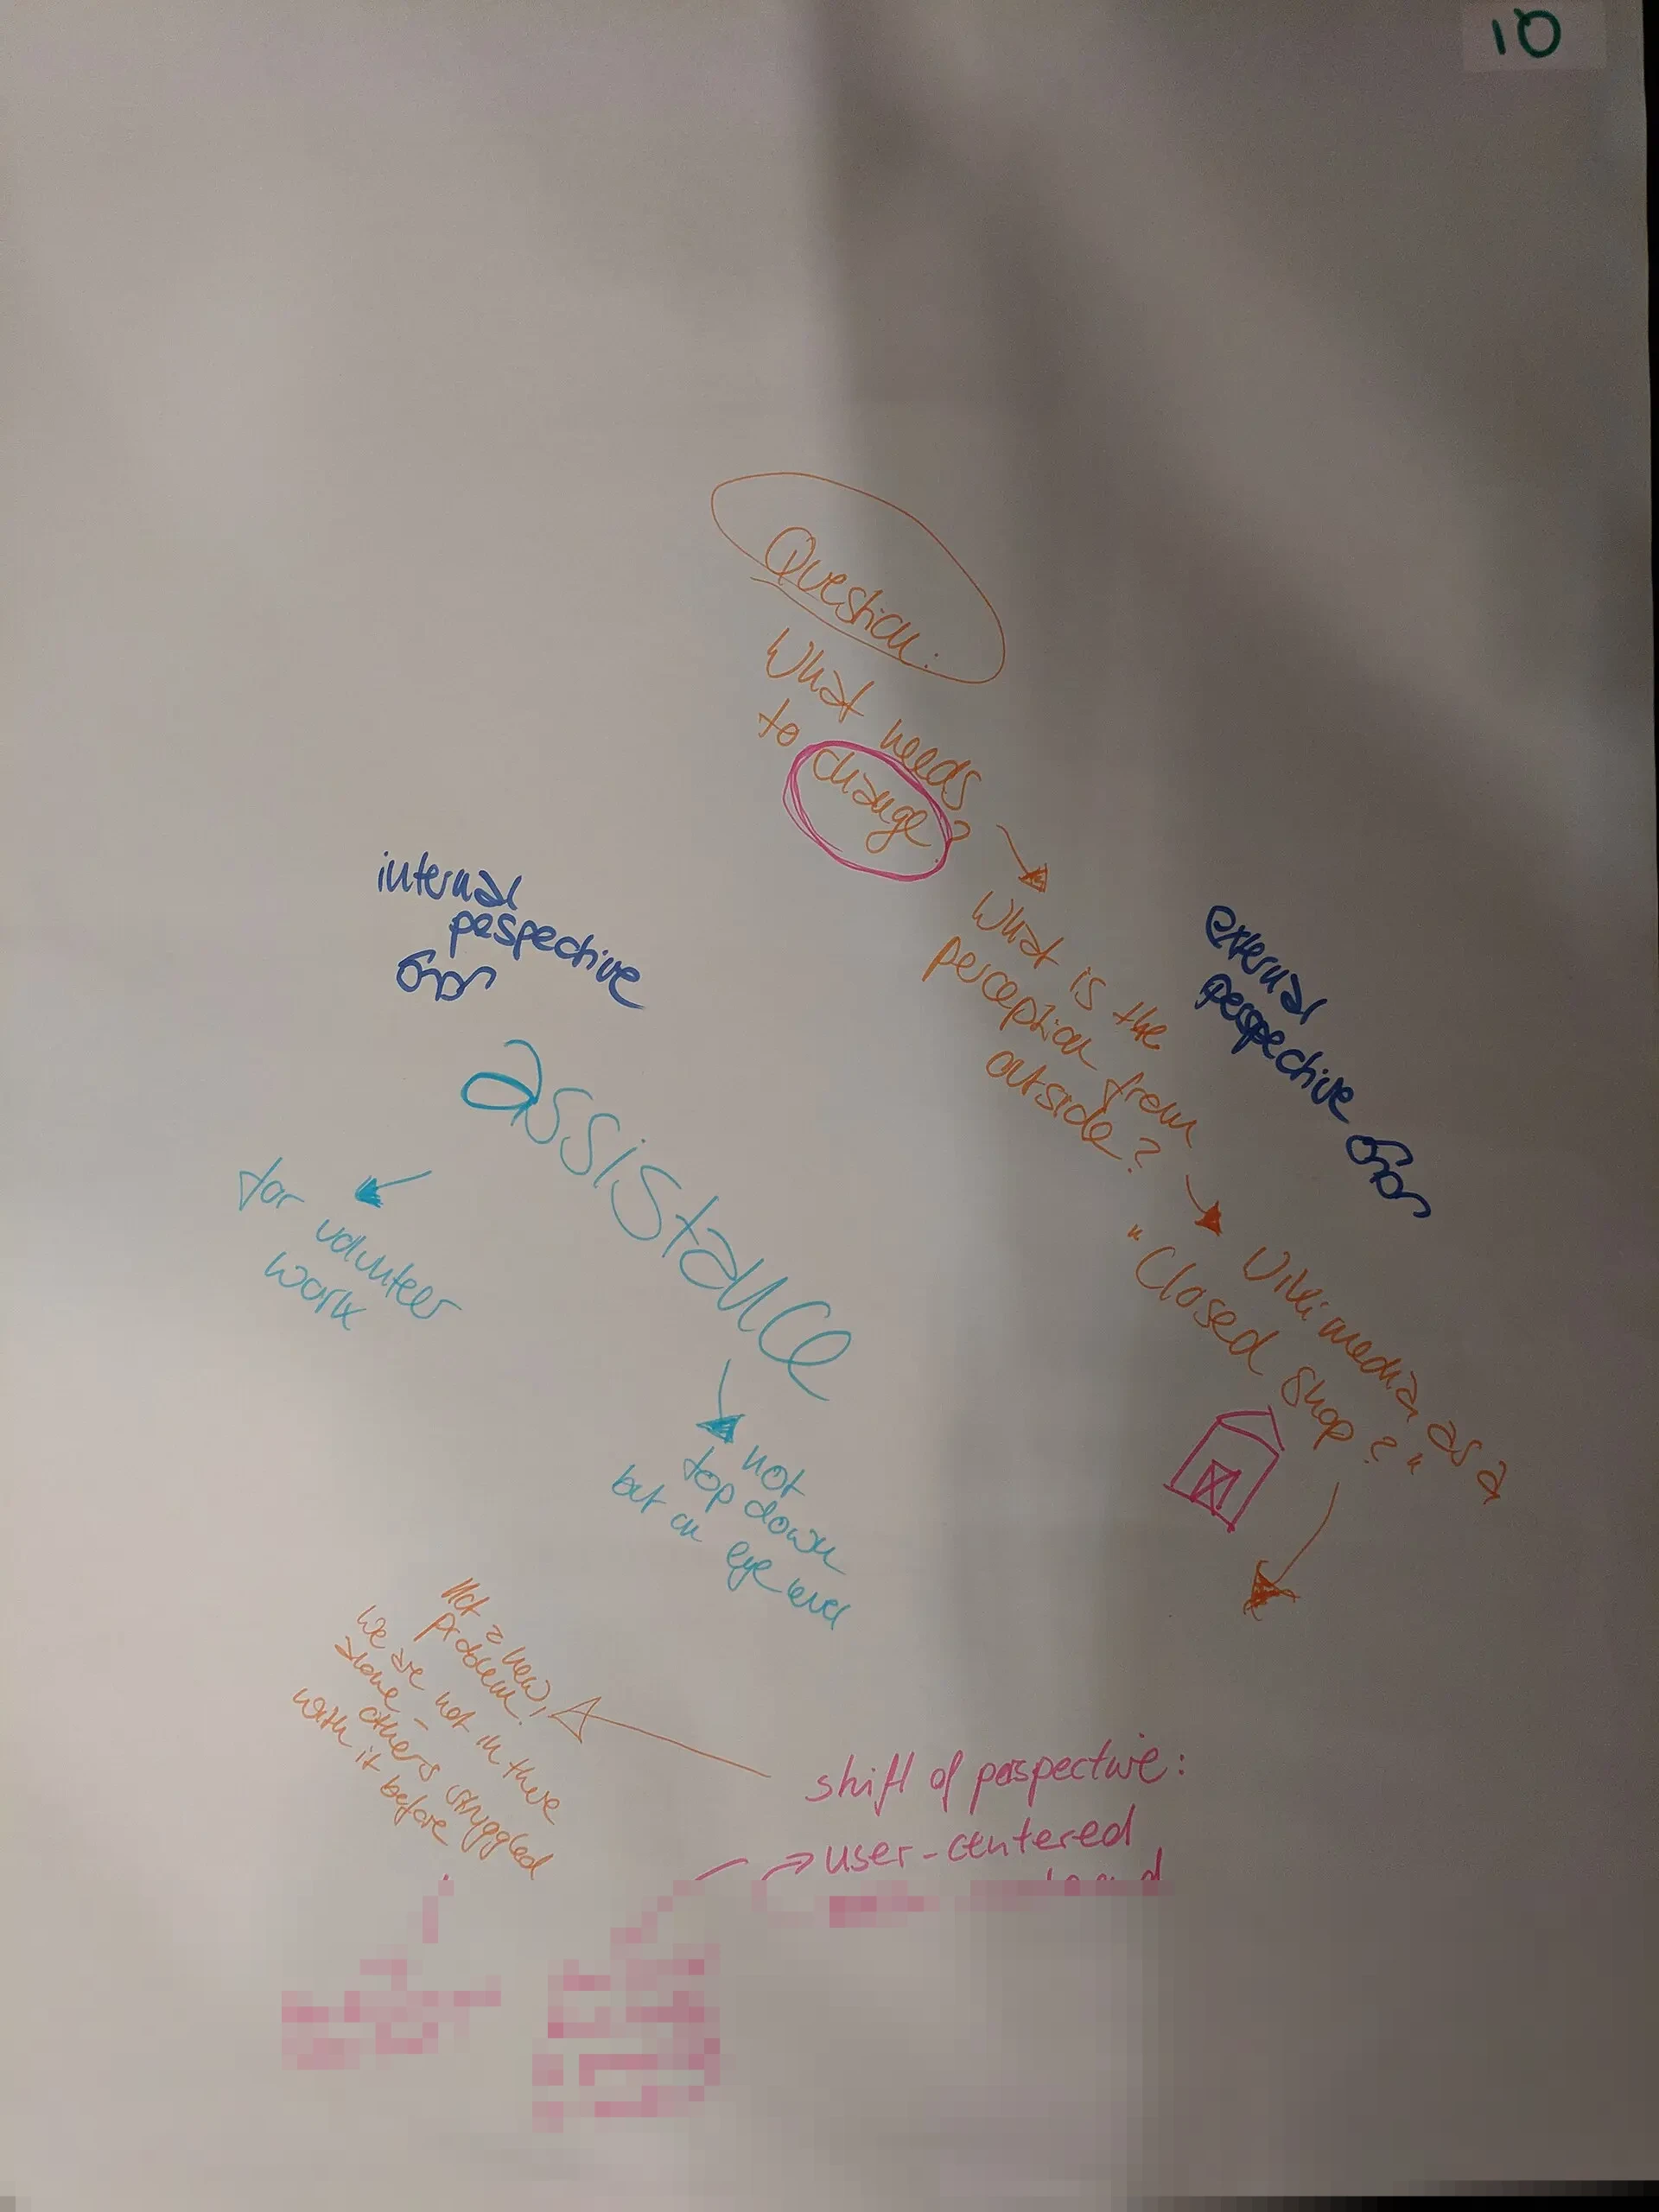 10
Question:
What needs
to change?
What is the
perception from
outside?
external
perspective
Wikimedia as a
"Closed Shop?"
internal
pespective
assistance
for volunteer
work
not
top down
but on eye level
Not a new
problem.
We are not in there
alone -
others struggled
with it before
shift of perspective:
user-centered